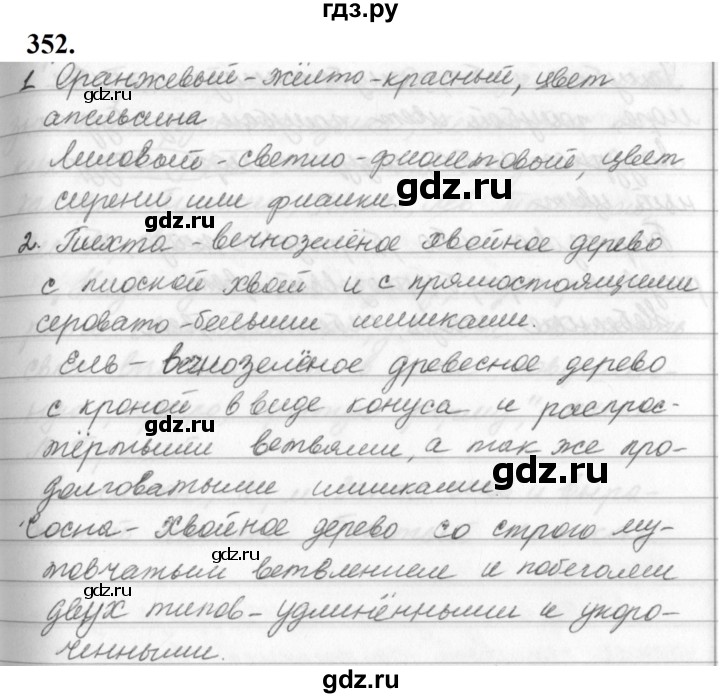 гдз.ру
352.
1 Оранжевый - жёлто-красный, цвет
gdz.ru
апельсина
Лиловый - светло-фиолетовый, цвет
gdz.ru
сирени или фиалки.
gdz.ru
2. Пихта - вечнозелёное хвойное дерево
с плоской хвоей и с прямостоящими
серовато-белыми шишками.
Ель - вечнозелёное древесное дерево
с кроной в виде конуса и распрос-
тёртыми ветвями, а так же про-
gdz.ru
долговатыми шишками.
Сосна - хвойное дерево со строго му-
gdz.ru
товчатым ветвлением и побегами
двух типов - удлинёнными и укоро-
ченными.
gdz.ru
gdz.ru